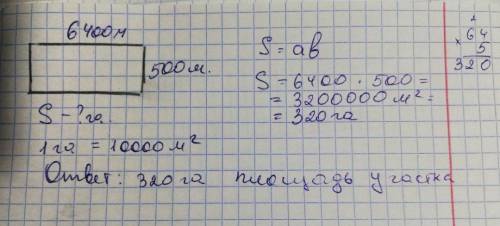 6400м
500м.
S - ? га.
1га = 10000 м²
S = ab
S = 6400 · 500 =
= 3200000 м² =
= 320 га
2
64
× 5
320
Ответ: 320 га площадь участка